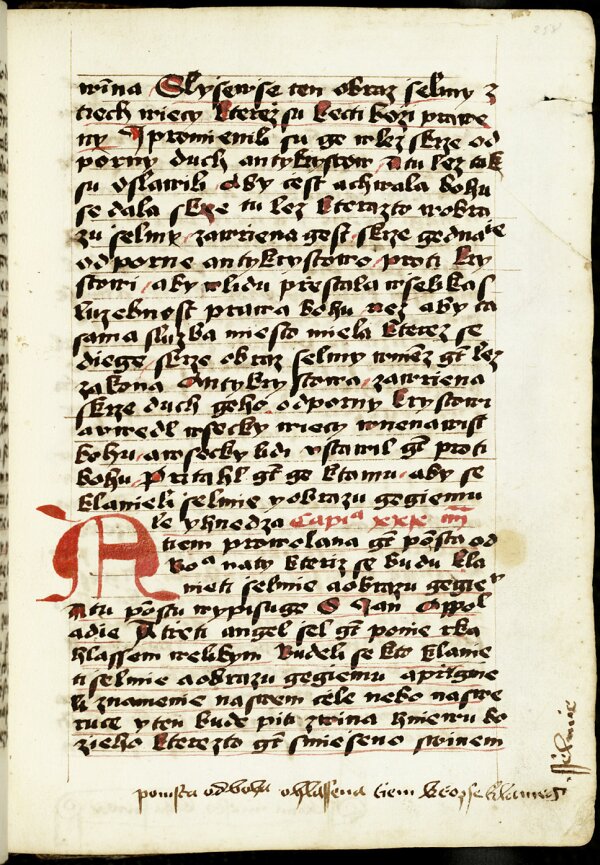 wina Slysewse ten obraz selmy z
tiech wiecy kterez su kecti bozi prawe
ny A promienili su ge w lez skrze od
porny duch antykrystow A tu lez tak
su oslawili Aby cest a chwala bohu
se dala skrze tu lez kterazto w obra
zu selmy zawriena gest skrze gednanie
odporne antykrystowo proti kry
stowi aby w lidu prestala wselikas
luzebnost prawa bohu nez aby ta
sama sluzba miesto miela kterez se
diege skrze obraz selmy genz gt lez
zakona Antykrystowa zawriena
skrze duch geho odporny krystowi
a wedl wsecky wiecy w nenawist
bohu a wsecky lidi ustawil gt proti
bohu Pritahl gt ge k tamu aby se
klanieli selmie y obrazu gegiemu
Ale yhnedza Capia xxxe iiii
tiem prowolana gt posta od
boa na ty kteriz se budu kla
nieti selmie a obrazu gegiey
A tu postu wypisuge S Jan Appol
a die A treti angel sel gt po nie rka
hlassem welikym Budeli se kto klanie
ti selmie a obrazu gegiemu a prigme
li znamenie na swem cele nebo na swe
ruce y ten bude piti z wina hniewu bo
zieho kterezto gt smieseno s winem
selmie
pomsta od boha ohlassena tiem ktoz se klanieg